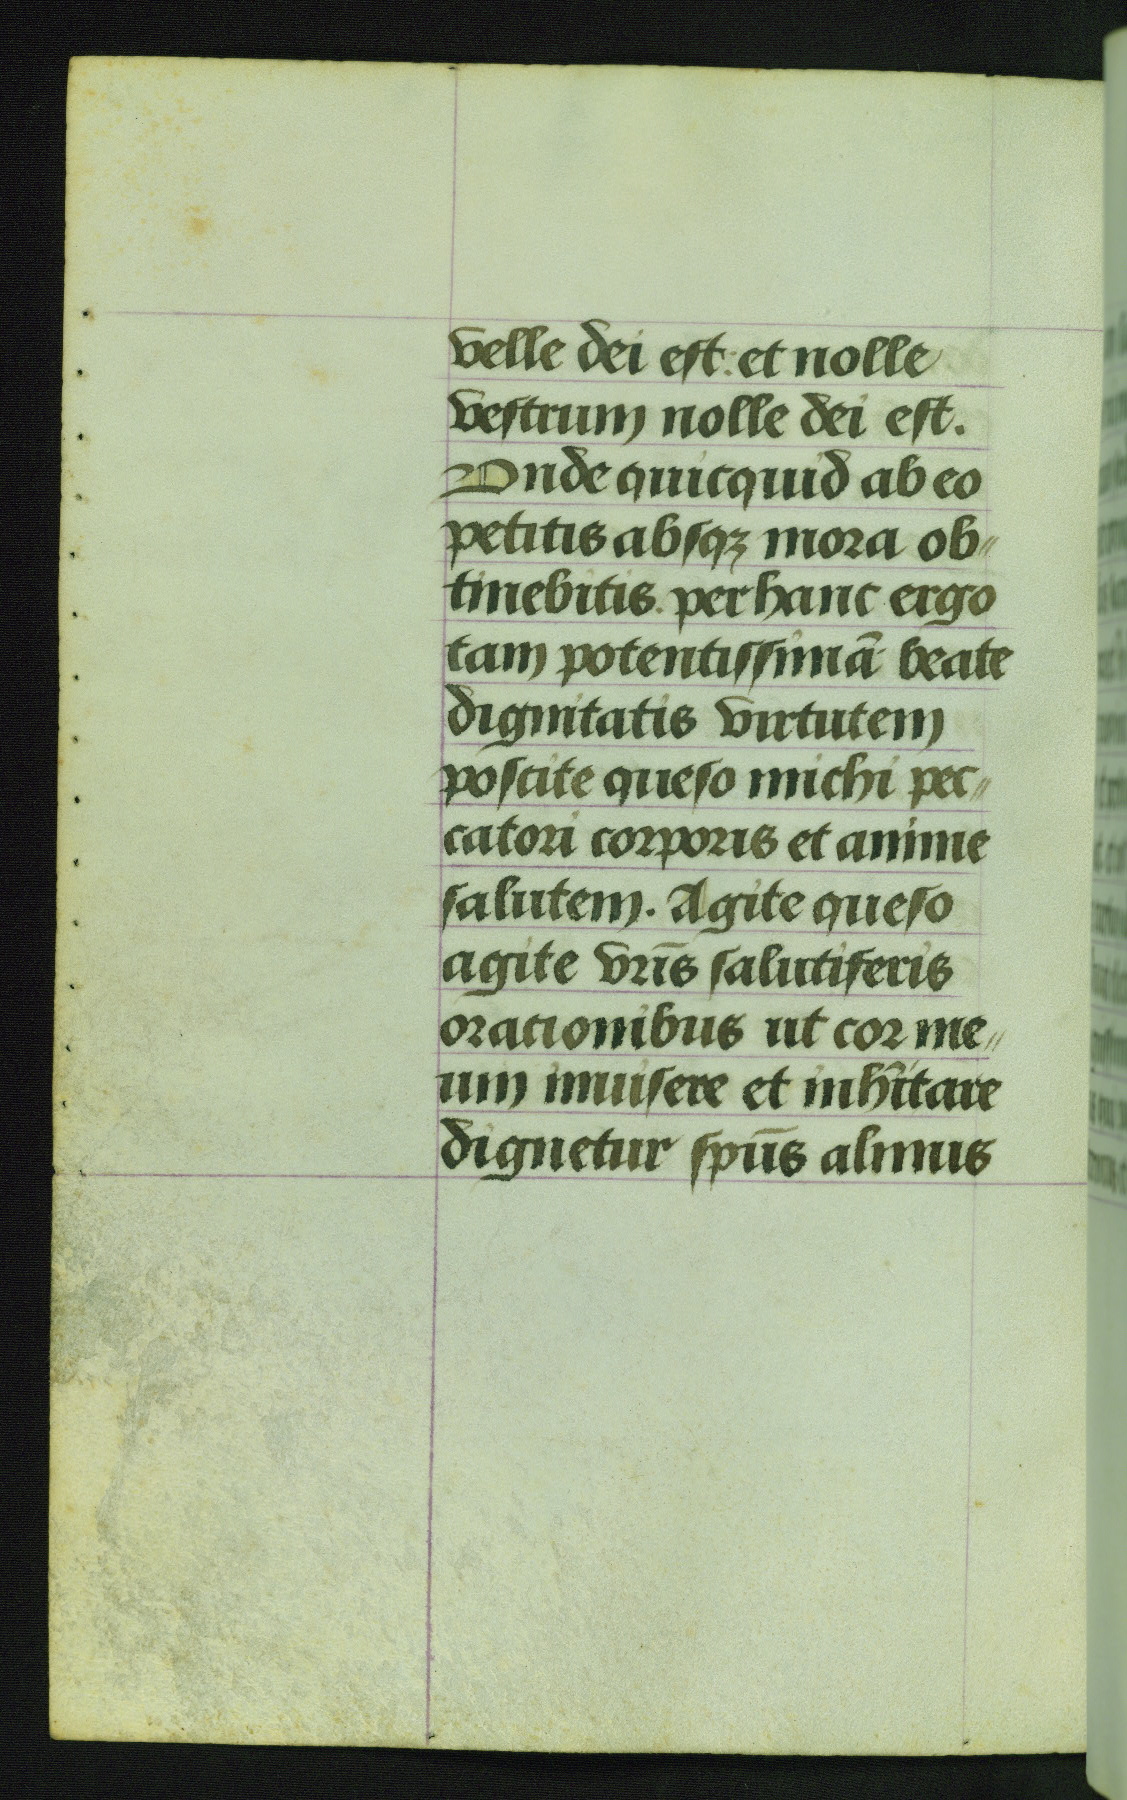 velle dei est: et nolle
vestrum nolle dei est.
Unde quicquid ab eo
petitis absqꝫ mora ob⸗
tinebitis. per hanc ergo
tam potentissimā beate
dignitatis virtutem
poscite queso michi pec⸗
catori corporis et anime
salutem. Agite queso
agite vr̄is salutiferis
orationibus ut cor me⸗
um inuisere et inhītare
dignetur sp̄us almus